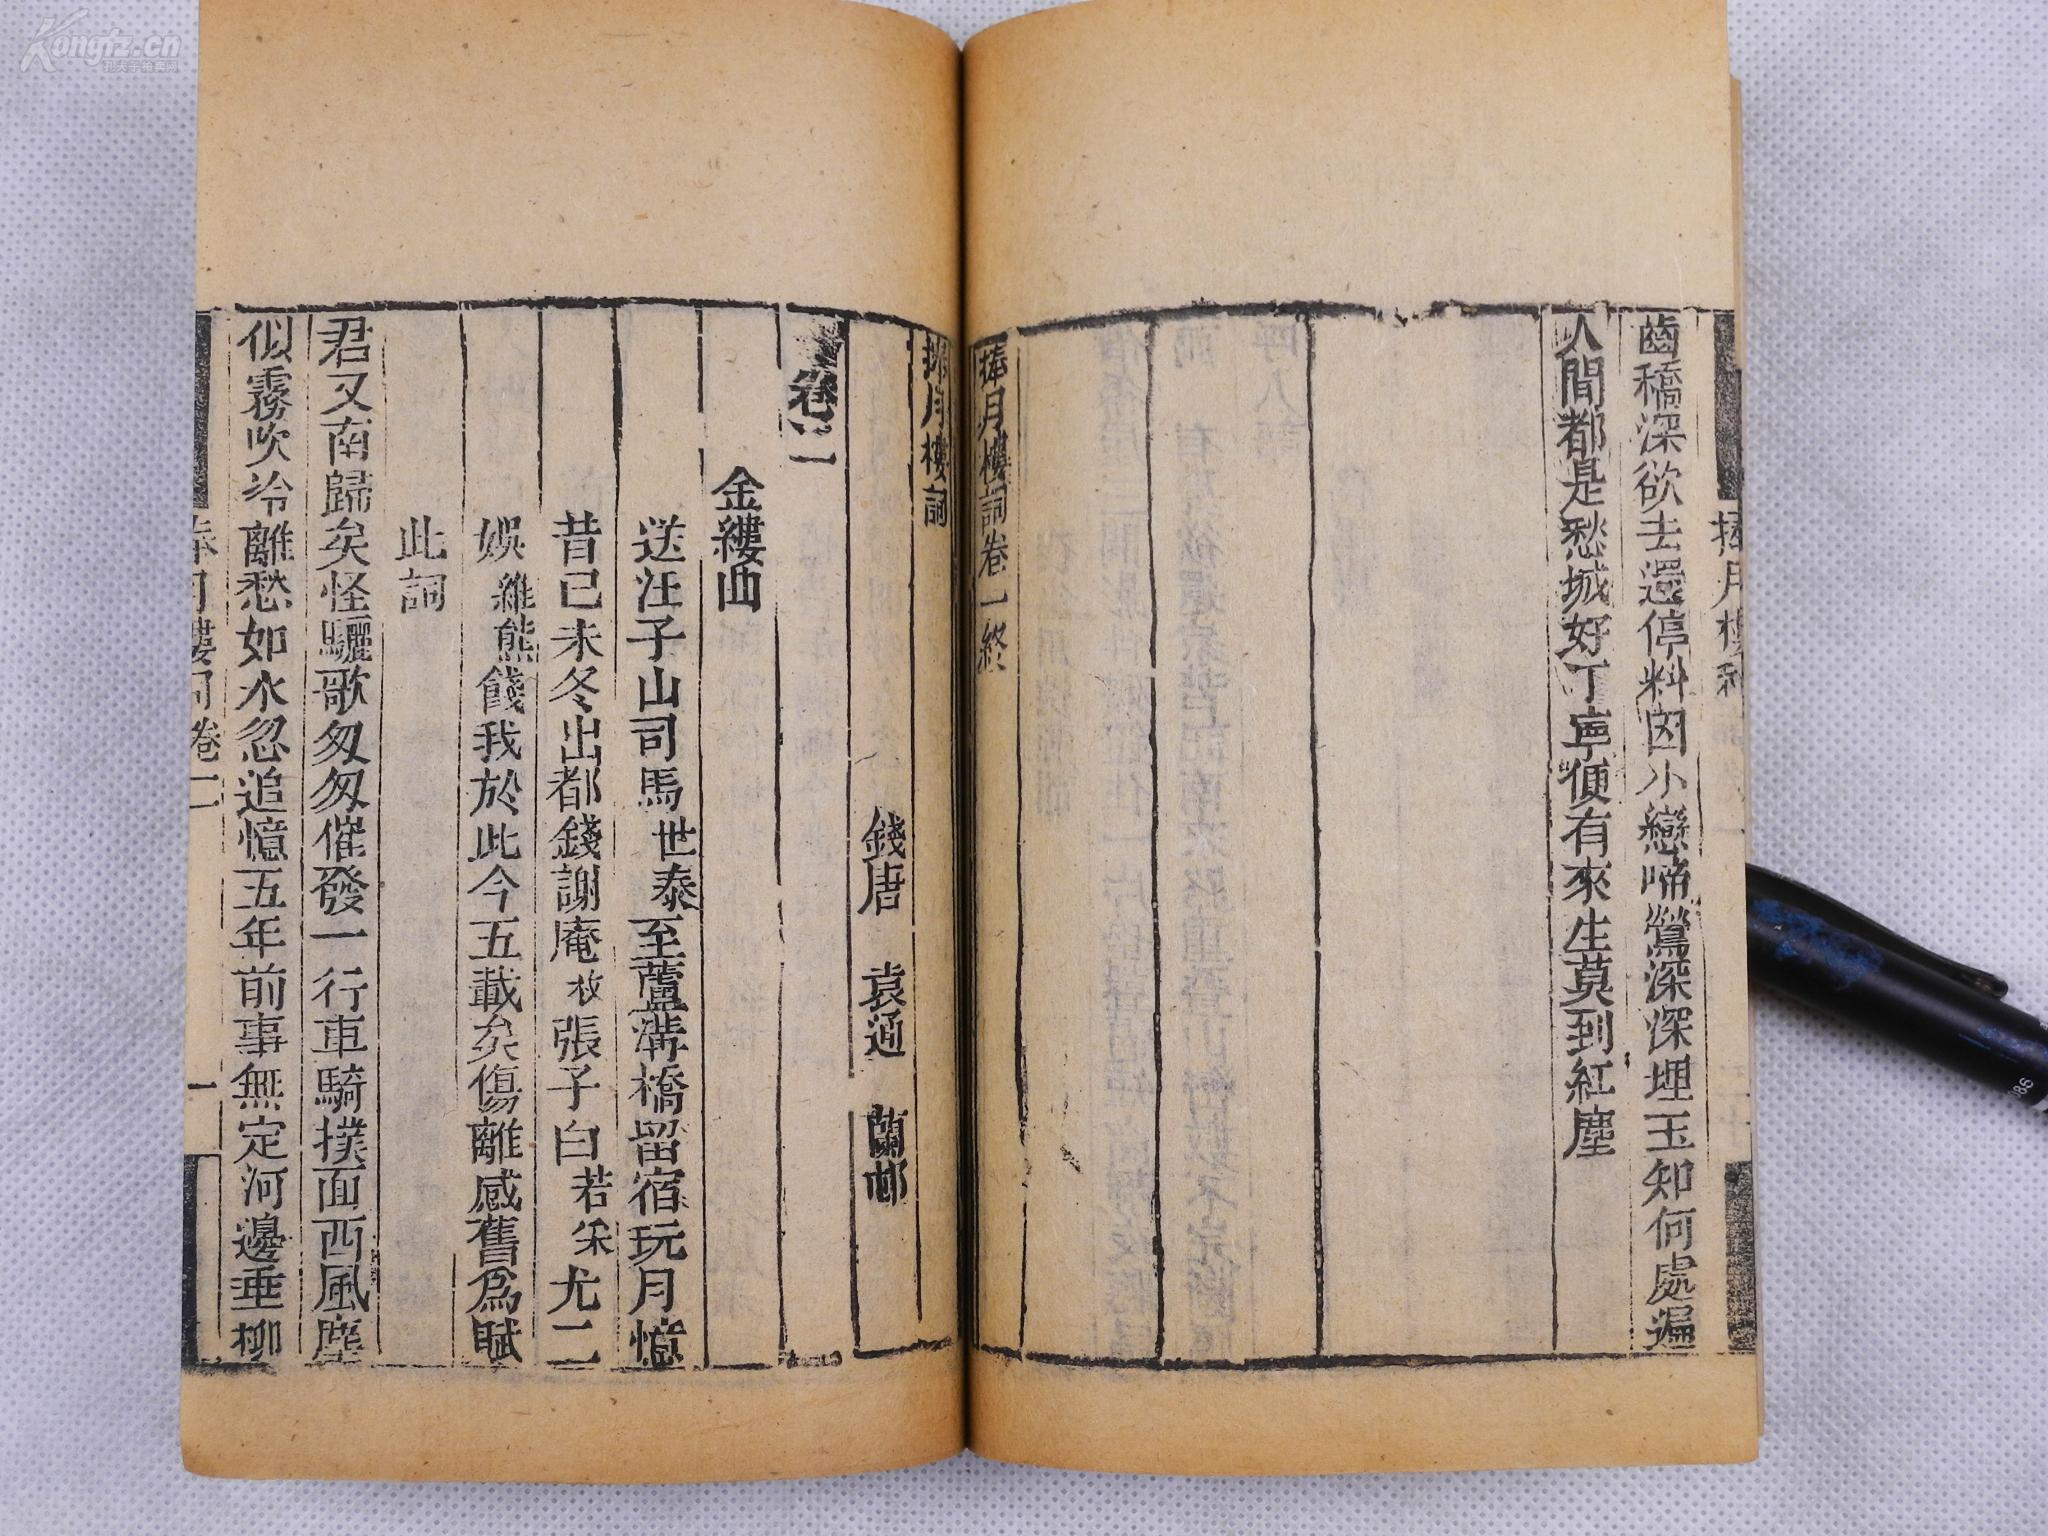 齒穚深欲去還停料因小戀啼鶯深深埋玉知何處遍
人間都是愁城好丁寧便有來生莫到紅塵
捧月樓詞卷一終
捧月樓詞
錢唐 袁通 蘭邨
卷二
金縷曲
送汪子山司馬世泰至蘆溝橋留宿玩月憶
昔己未冬出都錢謝庵枚張子白若采尤二
娛維熊餞我於此今五載矣傷離感舊爲賦
此詞
君又南歸矣怪驪歌匆匆催發一行車騎撲面西風塵
似霧吹冷離愁如水忽追憶五年前事無定河邊垂柳
捧月樓詞卷二
一
Kongfz.cn
孔夫子拍卖网